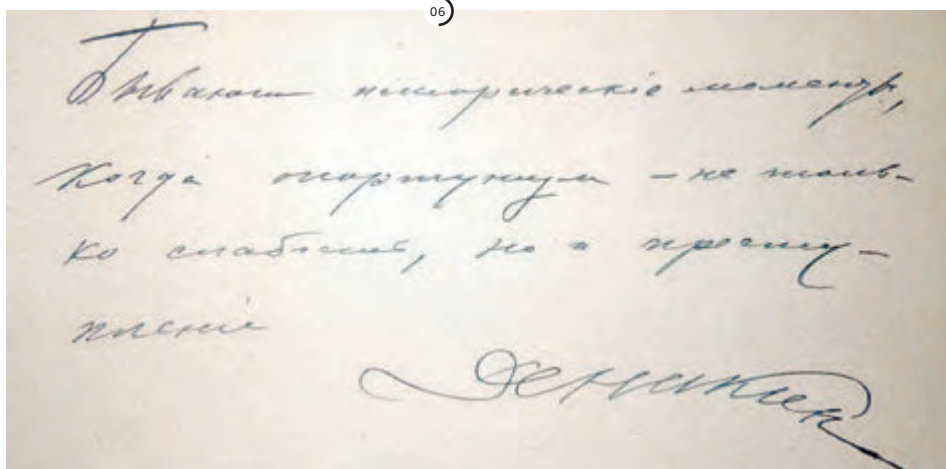 06
Бываютъ историческіе моменты,
когда опортунизм – не толь-
ко слабость, но и престу-
пленіе
Деникин